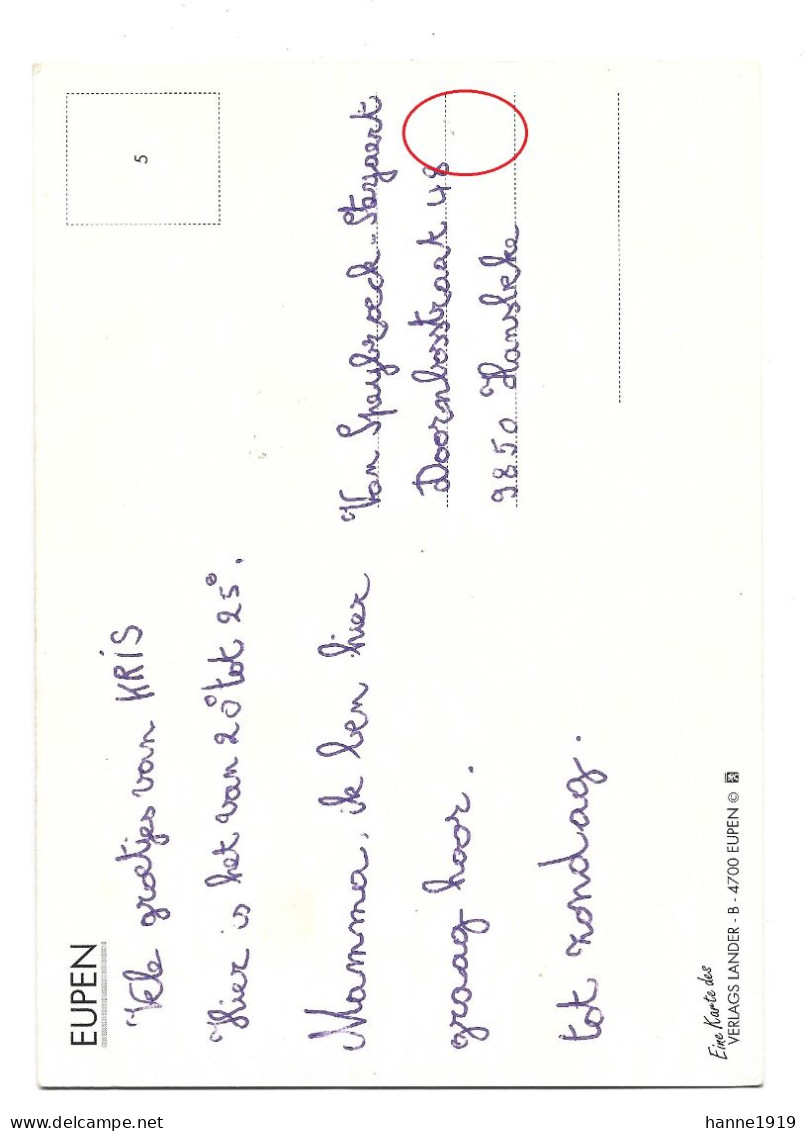 EUPEN
Vele groetjes van KRIS
Hier is het van 20° tot 25°.
Mamma, ik ben hier
graag hoor.
tot zondag.
5
Van Speybroeck - Steyaert
Doornbosstraat 48
9850 Hansbeke
Eine Karte des
VERLAGS LANDER - B - 4700 EUPEN ©
hanne1919